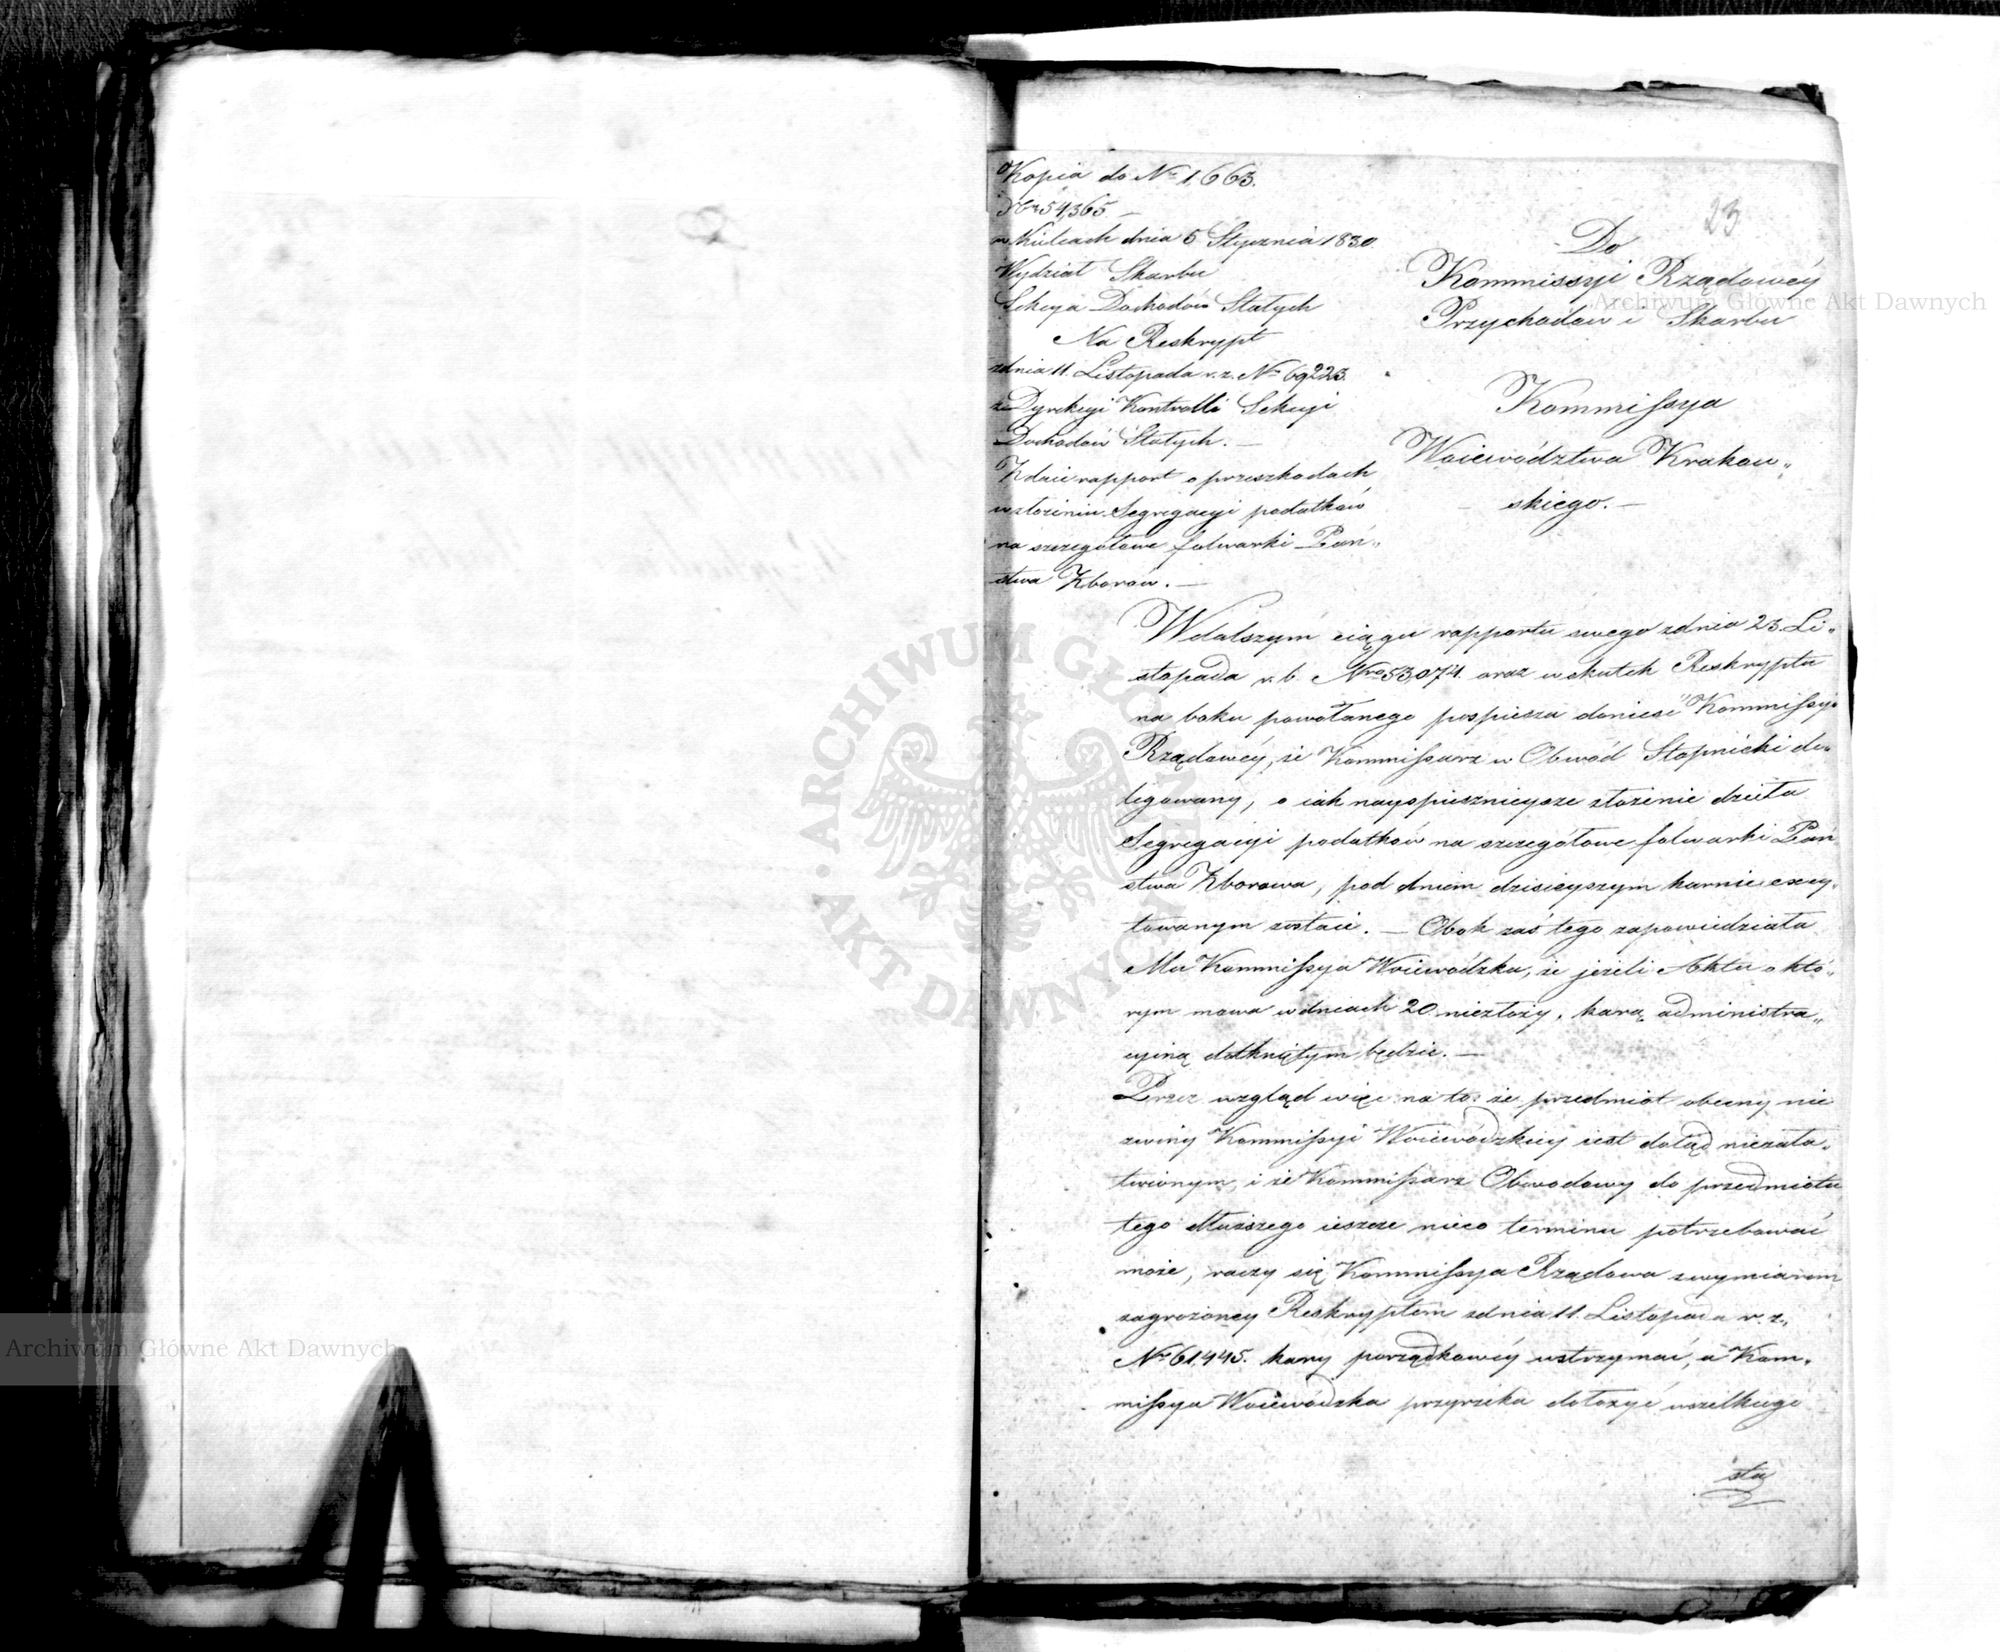 Kopia do Nº 1663.
Nro 54,365. —
w Kielcach dnia 5 Stycznia 1830.
Wydział Skarbu
Sekcya Dochodów Stałych
Na Reskrypt
z dnia 11. Listopada r. z. Nº 69223.
z Dyrekcyi Kontrolli Sekcyi
Dochodów Stałych. —
Zdaie rapport o przeszkodach
w złożeniu Segregacyi podatków
na szczegółowe folwarki Pań„
stwa Zborów. —
23
Do
Kommissyi Rządowéy
Przychodów i Skarbu
Kommissya
Woiewództwa Krakow„
skiego. —
W dalszym ciągu rapportu swego z dnia 23. Li„
stopada r. b. Nro 53,074. oraz w skutek Reskryptu
na boku powołanego pospiesza donieść Kommissyi
Rządowéy, że Kommissarz w Obwód Stopnicki de„
legowany, o iak nayspiesznieysze złożenie dzieła
Segregacyi podatków na szczegółowe folwarki Pań
stwa Zborowa, pod dniem dzisieyszym karnie excy„
towanym zostaie. — Obok zaś tego zapowiedziała
Mu Kommissya Woiewódzka, że jeżeli Aktu o któ„
rym mowa w dniach 20. niezłoży, karą administra„
cyiną dotkniętym będzie. —
Przez wzgląd więc na to: że przedmiot obecny nie
z winy Kommissyi Woiewódzkiey iest dotąd niezała„
twionym, i że Kommissarz Obwodowy do przedmiotu
tego dłuższego ieszcze nieco terminu potrzebować
może, raczy się Kommissya Rządowa z wymiarem
zagrożoney Reskryptem z dnia 11. Listopada r. z.
Nº 61,445. kary porządkowéy wstrzymać, a Kom„
missya Woiewódzka przyrzeka dołożyć wszelkiego
sta
Archiwum Główne Akt Dawnych
Archiwum Główne Akt Dawnych
· ARCHIWUM GŁÓWNE AKT DAWNYCH